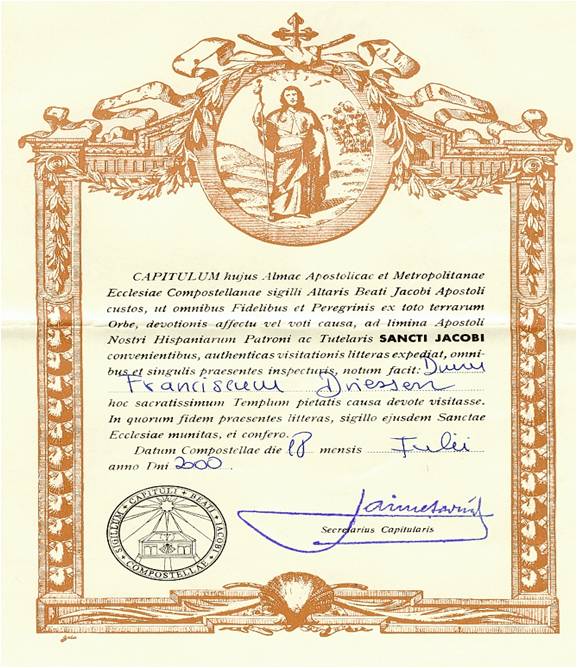 CAPITULUM hujus Almae Apostolicae et Metropolitanae
Ecclesiae Compostellanae sigilli Altaris Beati Jacobi Apostoli
custos, ut omnibus Fidelibus et Peregrinis ex toto terrarum
Orbe, devotionis affectu vel voti causa, ad limina Apostoli
Nostri Hispaniarum Patroni ac Tutelaris SANCTI JACOBI
convenientibus, authenticas visitationis litteras expediat, omni-
bus et singulis praesentes inspecturis, notum facit: Dnum
Franciscum Driessen
hoc sacratissimum Templum pietatis causa devote visitasse.
In quorum fidem praesentes litteras, sigillo ejusdem Sanctae
Ecclesiae munitas, ei confero.
Datum Compostellae die 18 mensis Julii
anno Dni 2000.
Secretarius Capitularis
SIGILLUM CAPITULI BEATI JACOBI
COMPOSTELLAE